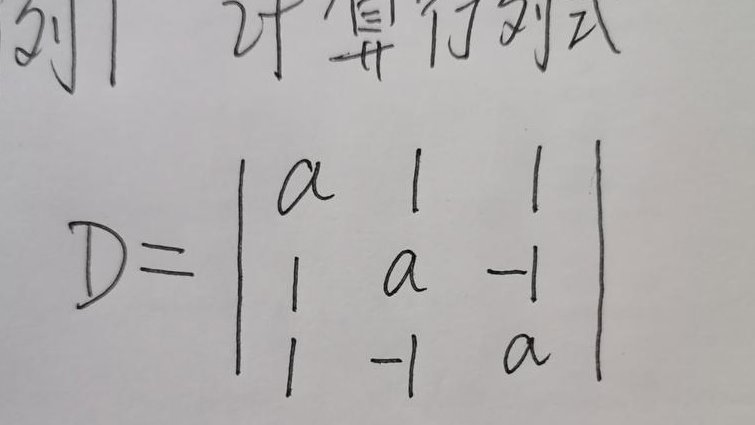 例1 计算行列式
a 1 1
D= 1 a -1
1 -1 a